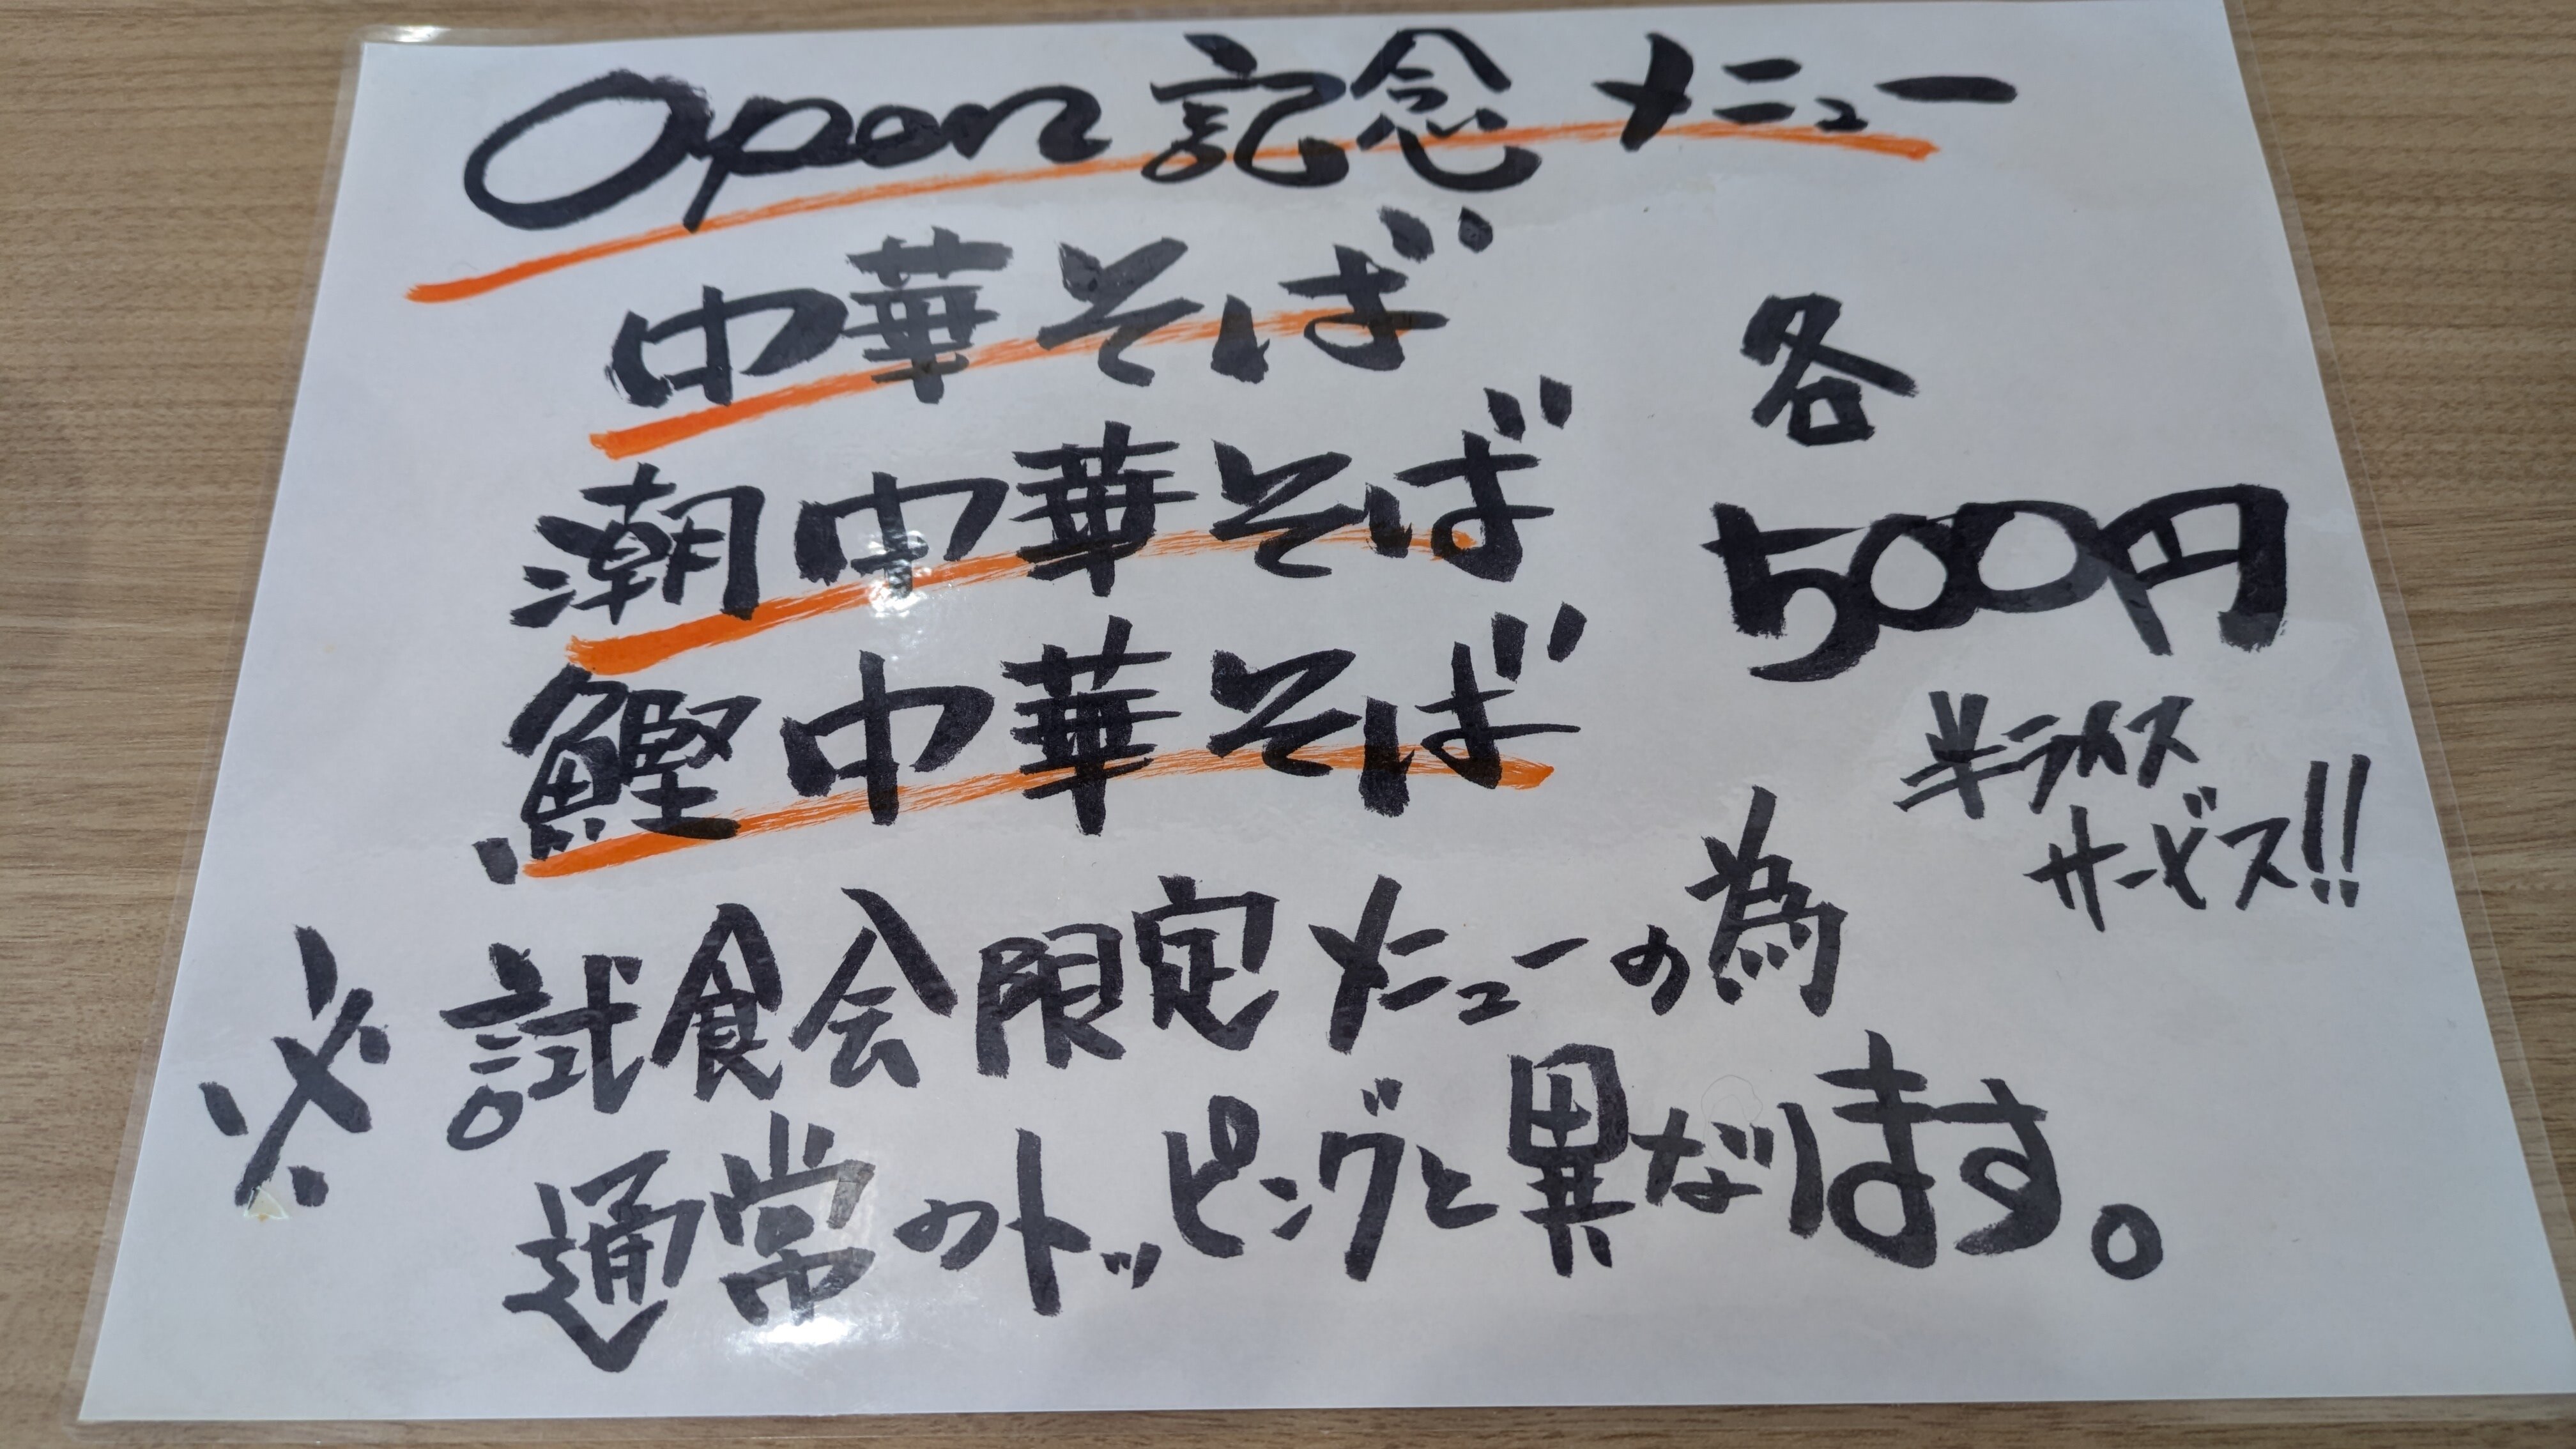 Open記念メニュー
中華そば
潮中華そば
鰹中華そば
各
500円
半ライス
サービス!!
※試食会限定メニューの為
通常のトッピングと異なります。